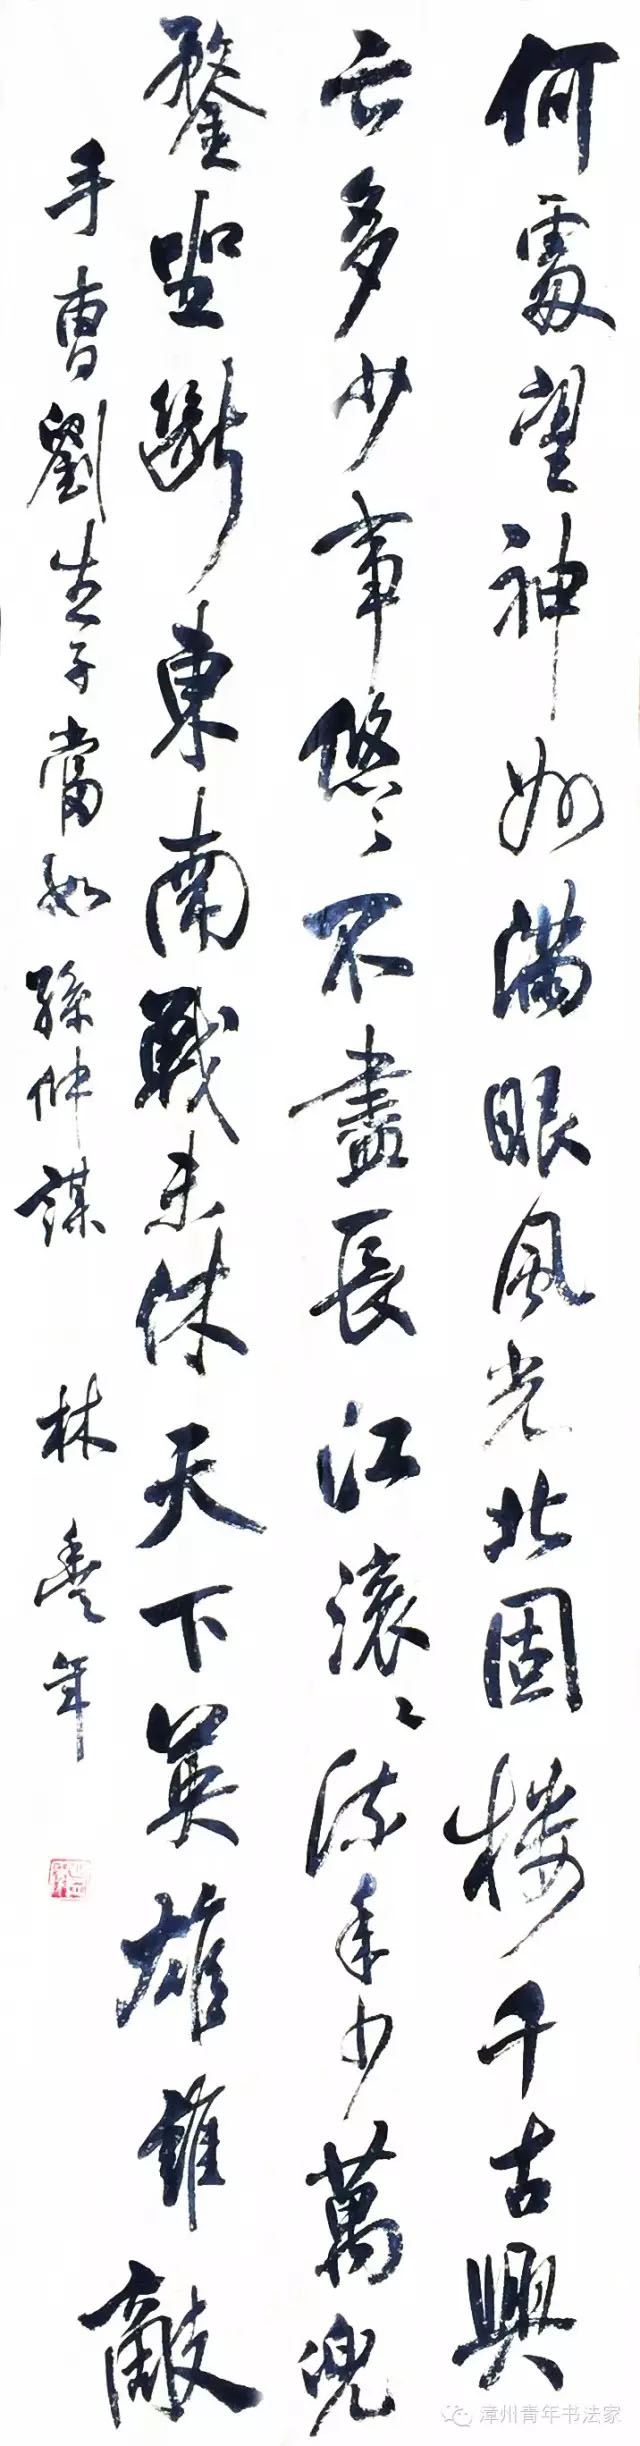 何處望神州滿眼風光北固樓千古興
亡多少事悠々不盡長江滾々流年少萬兜
鍪坐斷東南戰未休天下英雄誰敵
手曹劉生子當如孫仲謀 林豐年
漳州青年书法家